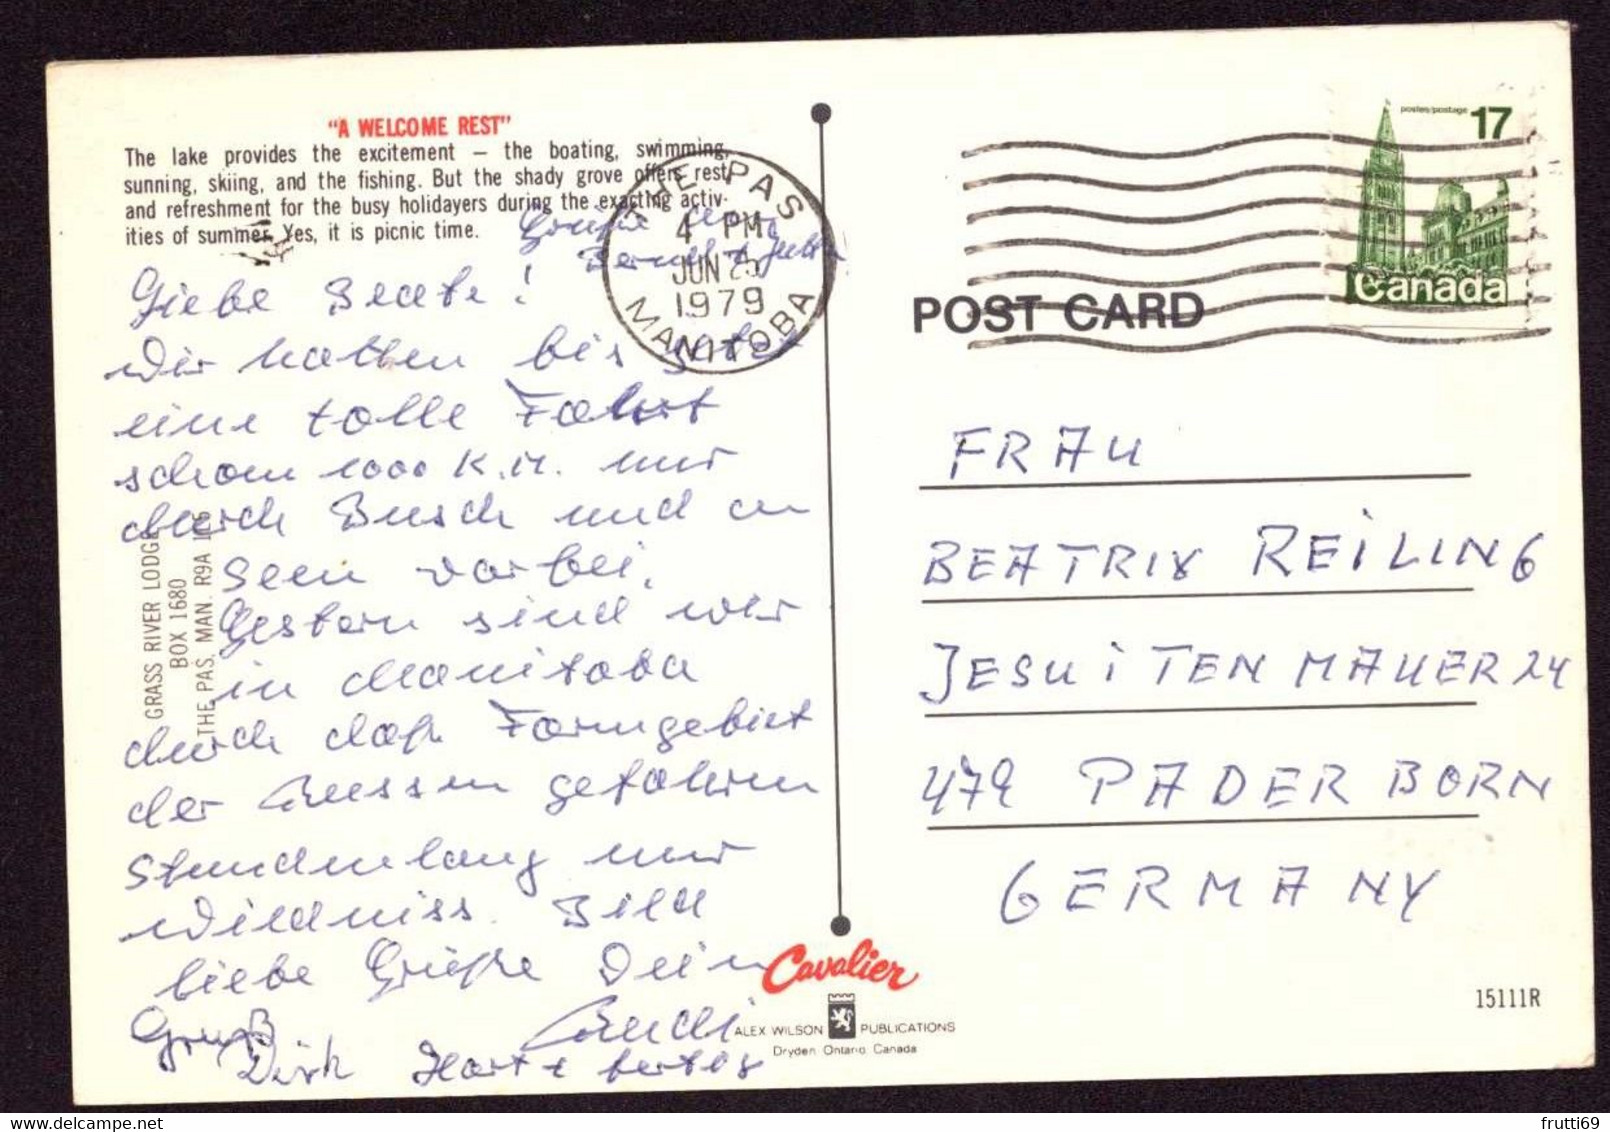 "A WELCOME REST"
The lake provides the excitement — the boating, swimming,
sunning, skiing, and the fishing. But the shady grove offers rest
and refreshment for the busy holidayers during the exacting activ-
ities of summer. Yes, it is picnic time.
Grüße
Bernd + Jutta
Liebe Beate!
Wir hatten bis jetzt
eine tolle Fahrt
schon 1000 K.M. nur
durch Busch und an
Seen vorbei.
Gestern sind wir
in Manitoba
durch daß Farmgebiet
der gefahren
Stundenlang nur
Wildniss. Bild
liebe Grüße Dein
Gruß
Dirk Horst +
GRASS RIVER LODGE
BOX 1680
THE PAS, MAN. R9A
THE PAS
4 PM
JUN 25
1979
MANITOBA
postes/postage 17
Canada
POST CARD
FRAU
BEATRIX REILING
JESUITENMAUER 24
479 PADERBORN
GERMANY
Cavalier
ALEX WILSON PUBLICATIONS
Dryden Ontario Canada
15111R
frutti69